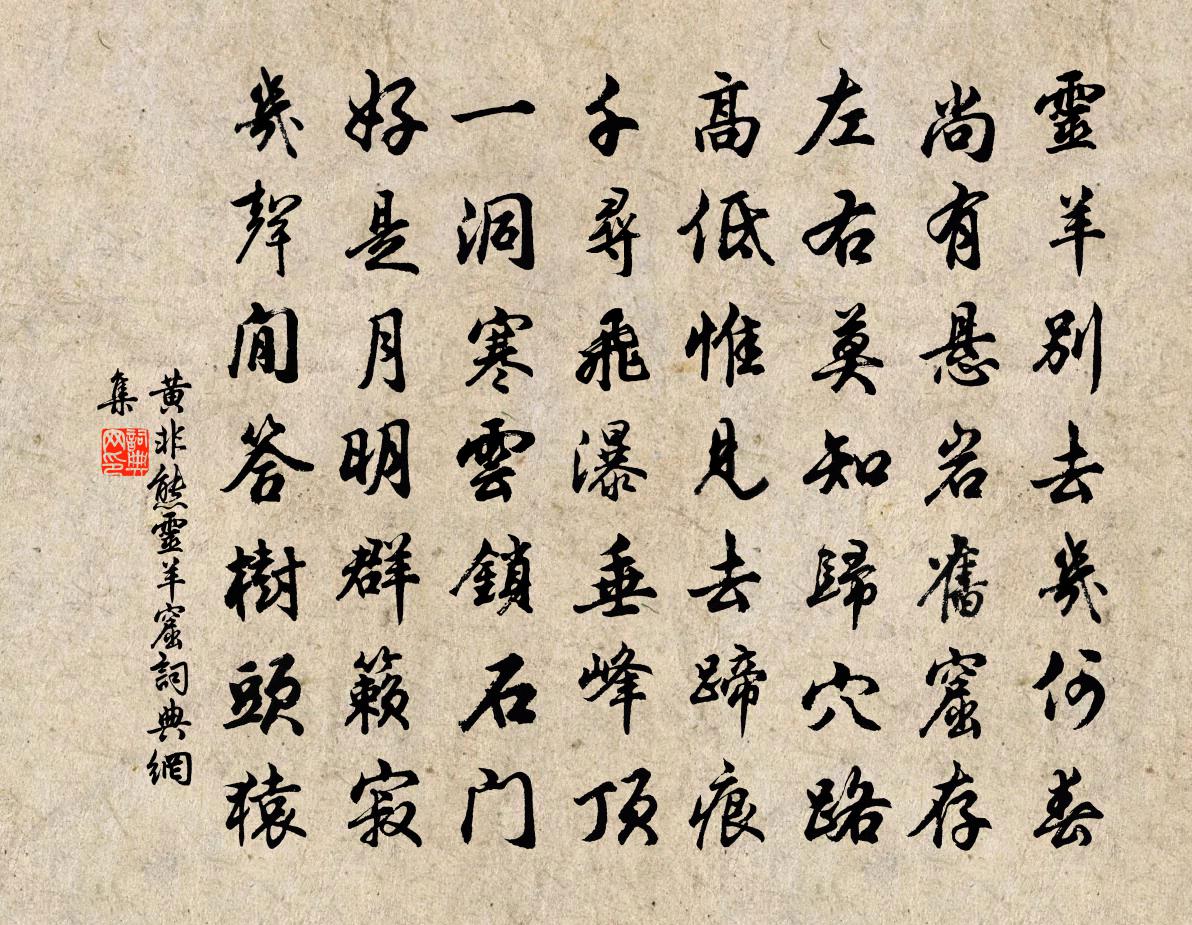 靈羊別去幾何春
尚有懸岩舊窟存
左右莫知歸穴路
高低惟見去蹄痕
千尋飛瀑垂峰頂
一洞寒雲鎖石門
好是月明群籟寂
幾聲閒答樹頭猿
黃非熊靈羊窟詞典網
集
詞典
网印